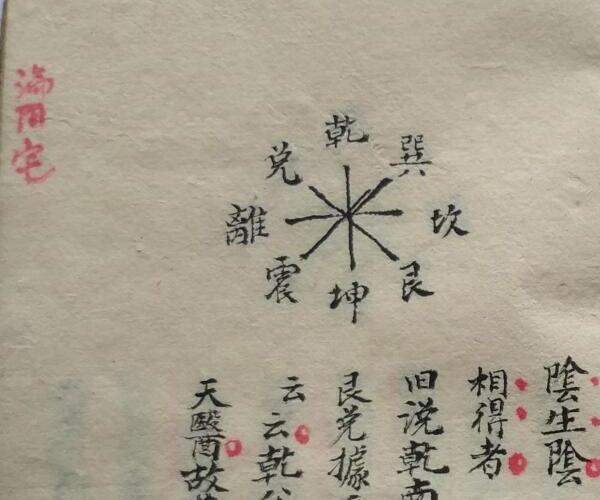 乾
巽
坎
艮
坤
震
離
兑
陰生陰
相得者
旧説乾南
艮兑據
云云乾
天醫故
論阳宅